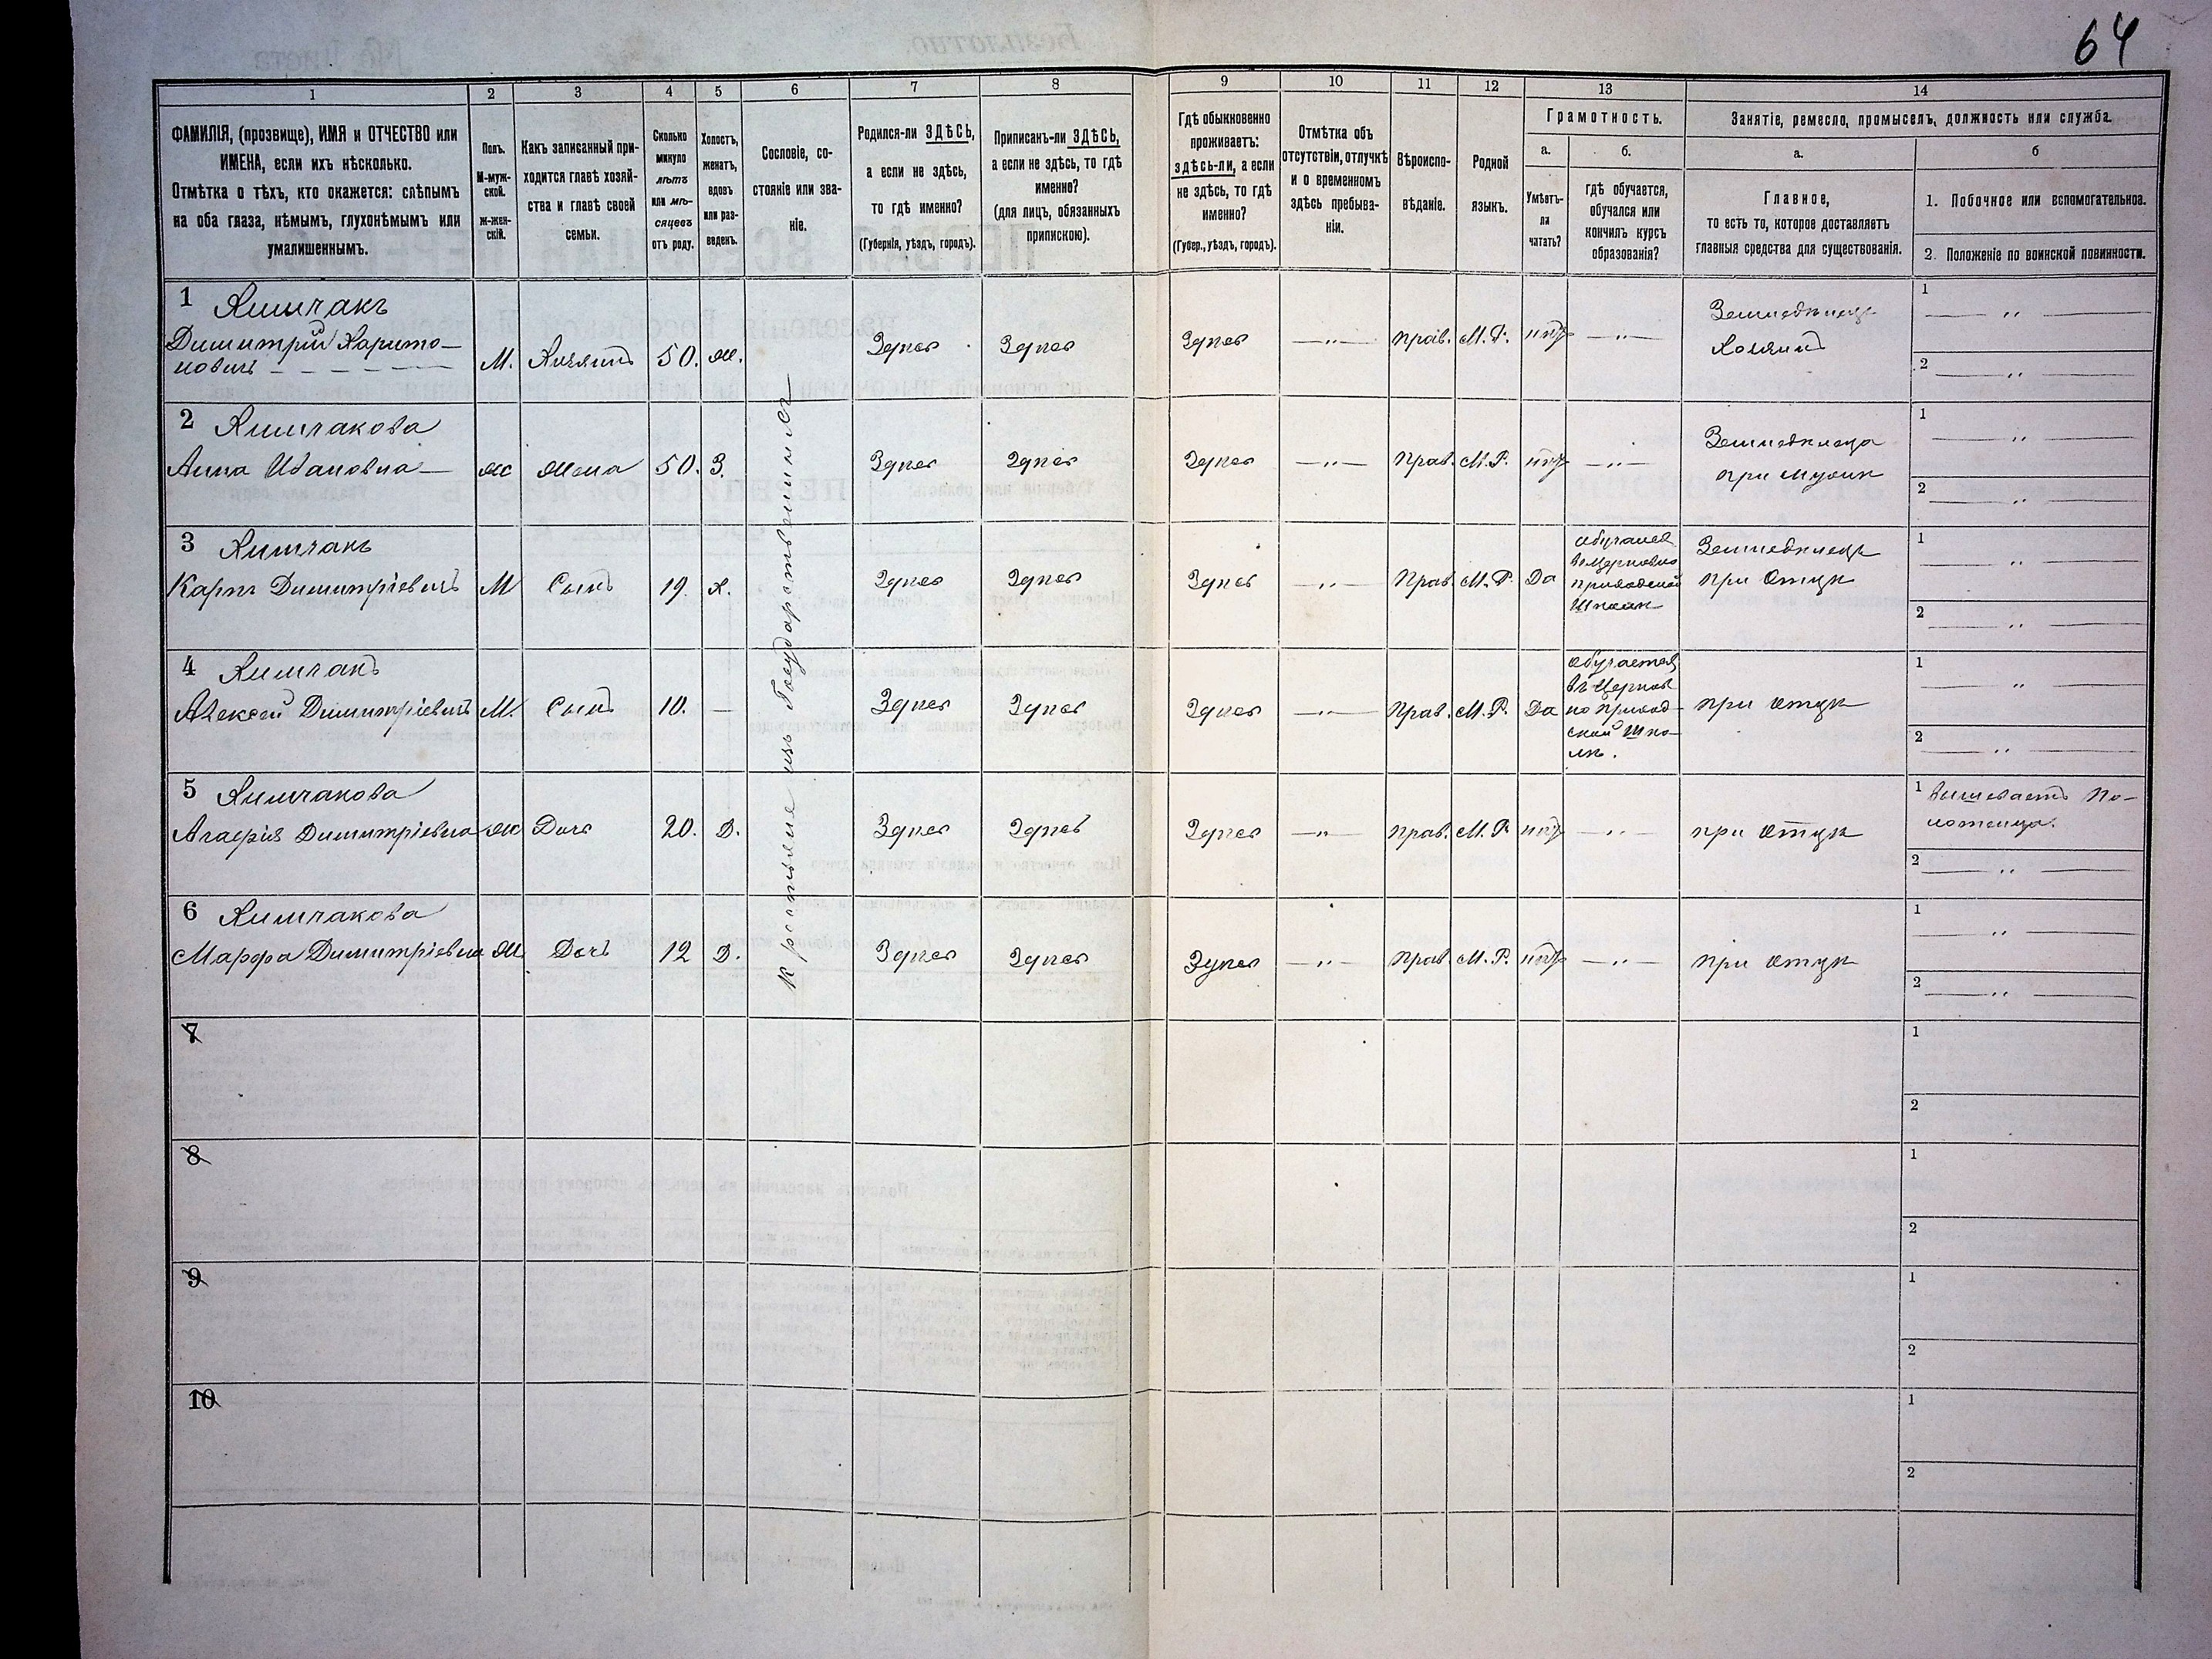 64
1 2 3 4 5 6 7 8 9 10 11 12 13 14
ФАМИЛІЯ, (прозвище), ИМЯ и ОТЧЕСТВО или
ИМЕНА, если ихъ нѣсколько.
Отмѣтка о тѣхъ, кто окажется: слѣпымъ
на оба глаза, нѣмымъ, глухонѣмымъ или
умалишеннымъ.
Полъ.
М-муж-
ской.
ж-жен-
скій.
Какъ записанный при-
ходится главѣ хозяй-
ства и главѣ своей
семьи.
Сколько
минуло
лѣтъ
или мѣ-
сяцевъ
отъ роду.
Холостъ,
женатъ,
вдовъ
или раз-
веденъ.
Сословіе, со-
стояніе или зва-
ніе.
Родился-ли ЗДѢСЬ,
а если не здѣсь,
то гдѣ именно?
(Губернія, уѣздъ, городъ).
Приписанъ-ли ЗДѢСЬ,
а если не здѣсь, то гдѣ
именно?
(для лицъ, обязанныхъ
припискою).
Гдѣ обыкновенно
проживаетъ:
здѣсь-ли, а если
не здѣсь, то гдѣ
именно?
(Губер., уѣздъ, городъ).
Отмѣтка объ
отсутствіи, отлучкѣ
и о временномъ
здѣсь пребыва-
ніи.
Вѣроиспо-
вѣданіе.
Родной
языкъ.
Грамотность.
а.
Умѣетъ-
ли
читать?
б.
гдѣ обучается,
обучался или
кончилъ курсъ
образованія?
Занятіе, ремесло, промыселъ, должность или служба.
а.
Главное,
то есть то, которое доставляетъ
главныя средства для существованія.
б
1. Побочное или вспомогательное.
2. Положеніе по воинской повинности.
Крестьяне изъ Государственныхъ
1
Димитрій Харито-
новичъ
М. Хозяинъ 50. Ж. Здѣсь Здѣсь Здѣсь — " — Прав. М. Р. нѣтъ — " —
Земледѣлецъ
Хозяинъ
1 — " —
2 — " —
2
Анна Ивановна
Ж Жена 50. З. Здѣсь Здѣсь Здѣсь — " — Прав. М. Р. нѣтъ — " —
Земледѣлецъ
при Мужѣ
1 — " —
2 — " —
3
Карпъ Димитріевичъ
М Сынъ 19. Х. Здѣсь Здѣсь Здѣсь — " — Прав. М. Р. Да
обучался
въ Церковно
приходской
Школѣ
Земледѣлецъ
при Отцѣ
1 — " —
2 — " —
4
Алексѣй Димитріевичъ
М. Сынъ 10. — Здѣсь Здѣсь Здѣсь — " — Прав. М. Р. Да
обучается
въ Церков
но приход-
ской Шко-
лѣ.
при Отцѣ
1 — " —
2 — " —
5
Агафія Димитріевна
Ж Дочь 20. Д. Здѣсь Здѣсь Здѣсь — " — Прав. М. Р. нѣтъ — " —
при Отцѣ
1 Вышиваетъ По-
лотенца.
2 — " —
6
Марфа Димитріевна
Ж Дочь 12 Д. Здѣсь Здѣсь Здѣсь — " — Прав. М. Р. нѣтъ — " —
при Отцѣ
1 — " —
2 — " —
7
1
2
8
1
2
9
1
2
10
1
2